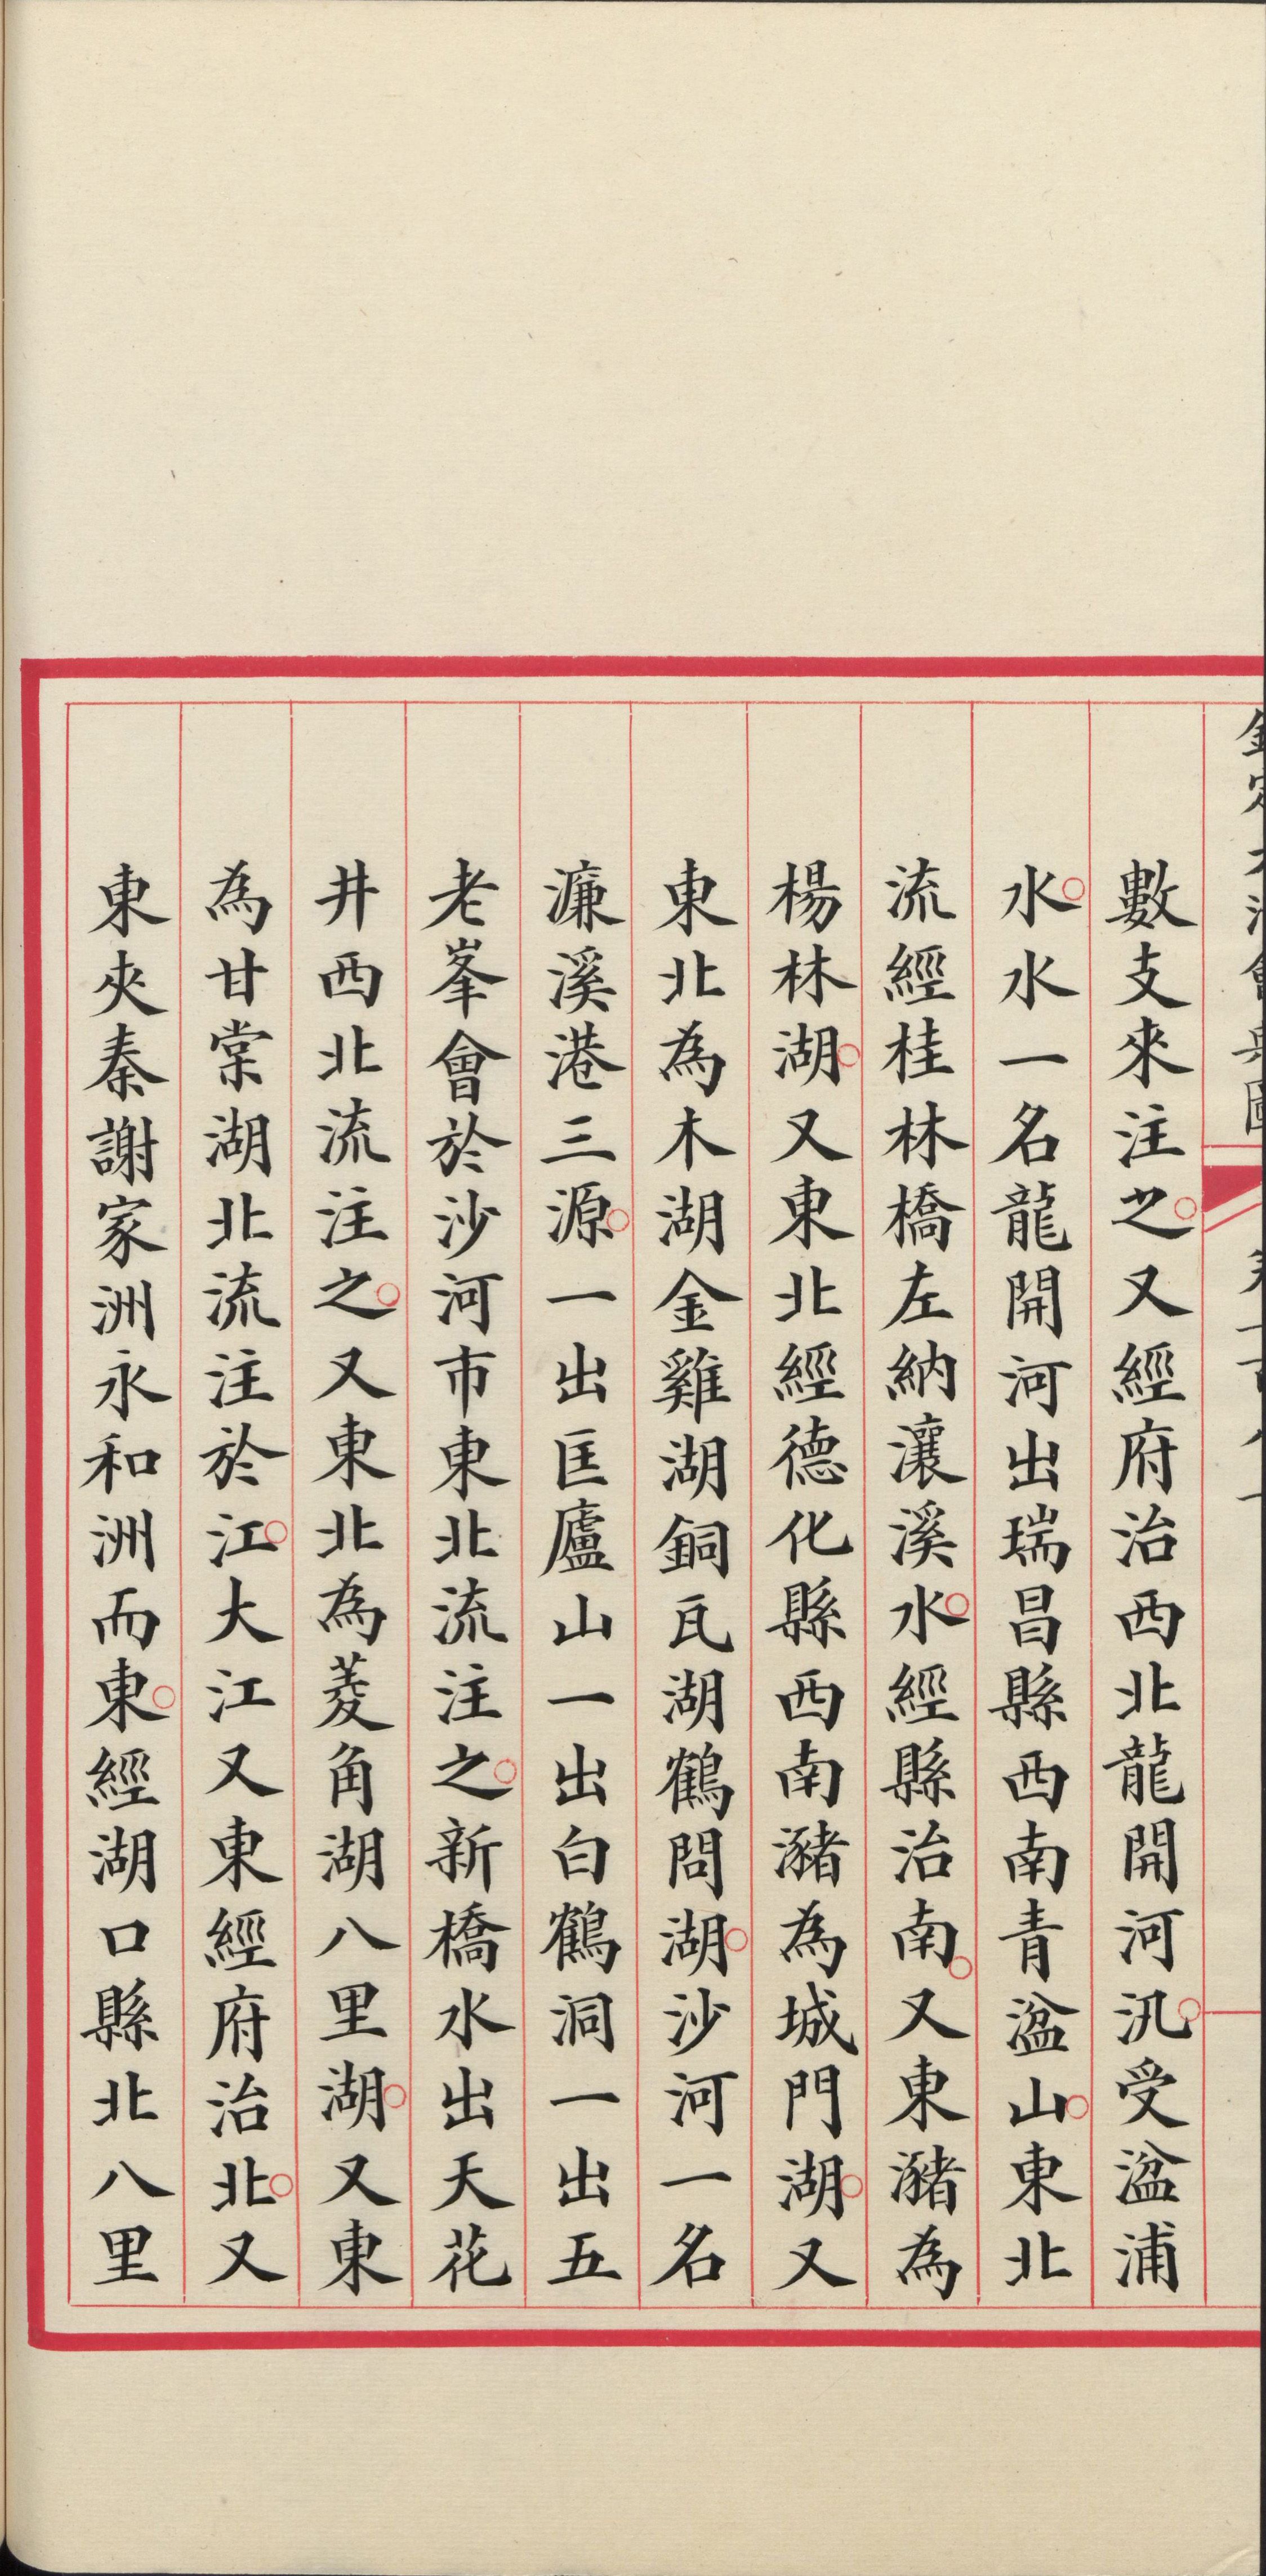 數支來注之又經府治西北龍開河汛受湓浦
水水一名龍開河出瑞昌縣西南青湓山東北
流經桂林橋左納瀼溪水經縣治南又東瀦為
楊林湖又東北經德化縣西南瀦為城門湖又
東北為木湖金雞湖銅瓦湖鶴問湖沙河一名
濂溪港三源一出匡廬山一出白鶴洞一出五
老峯會於沙河市東北流注之新橋水出天花
井西北流注之又東北為菱角湖八里湖又東
為甘棠湖北流注於江大江又東經府治北又
東夾秦謝家洲永和洲而東經湖口縣北八里